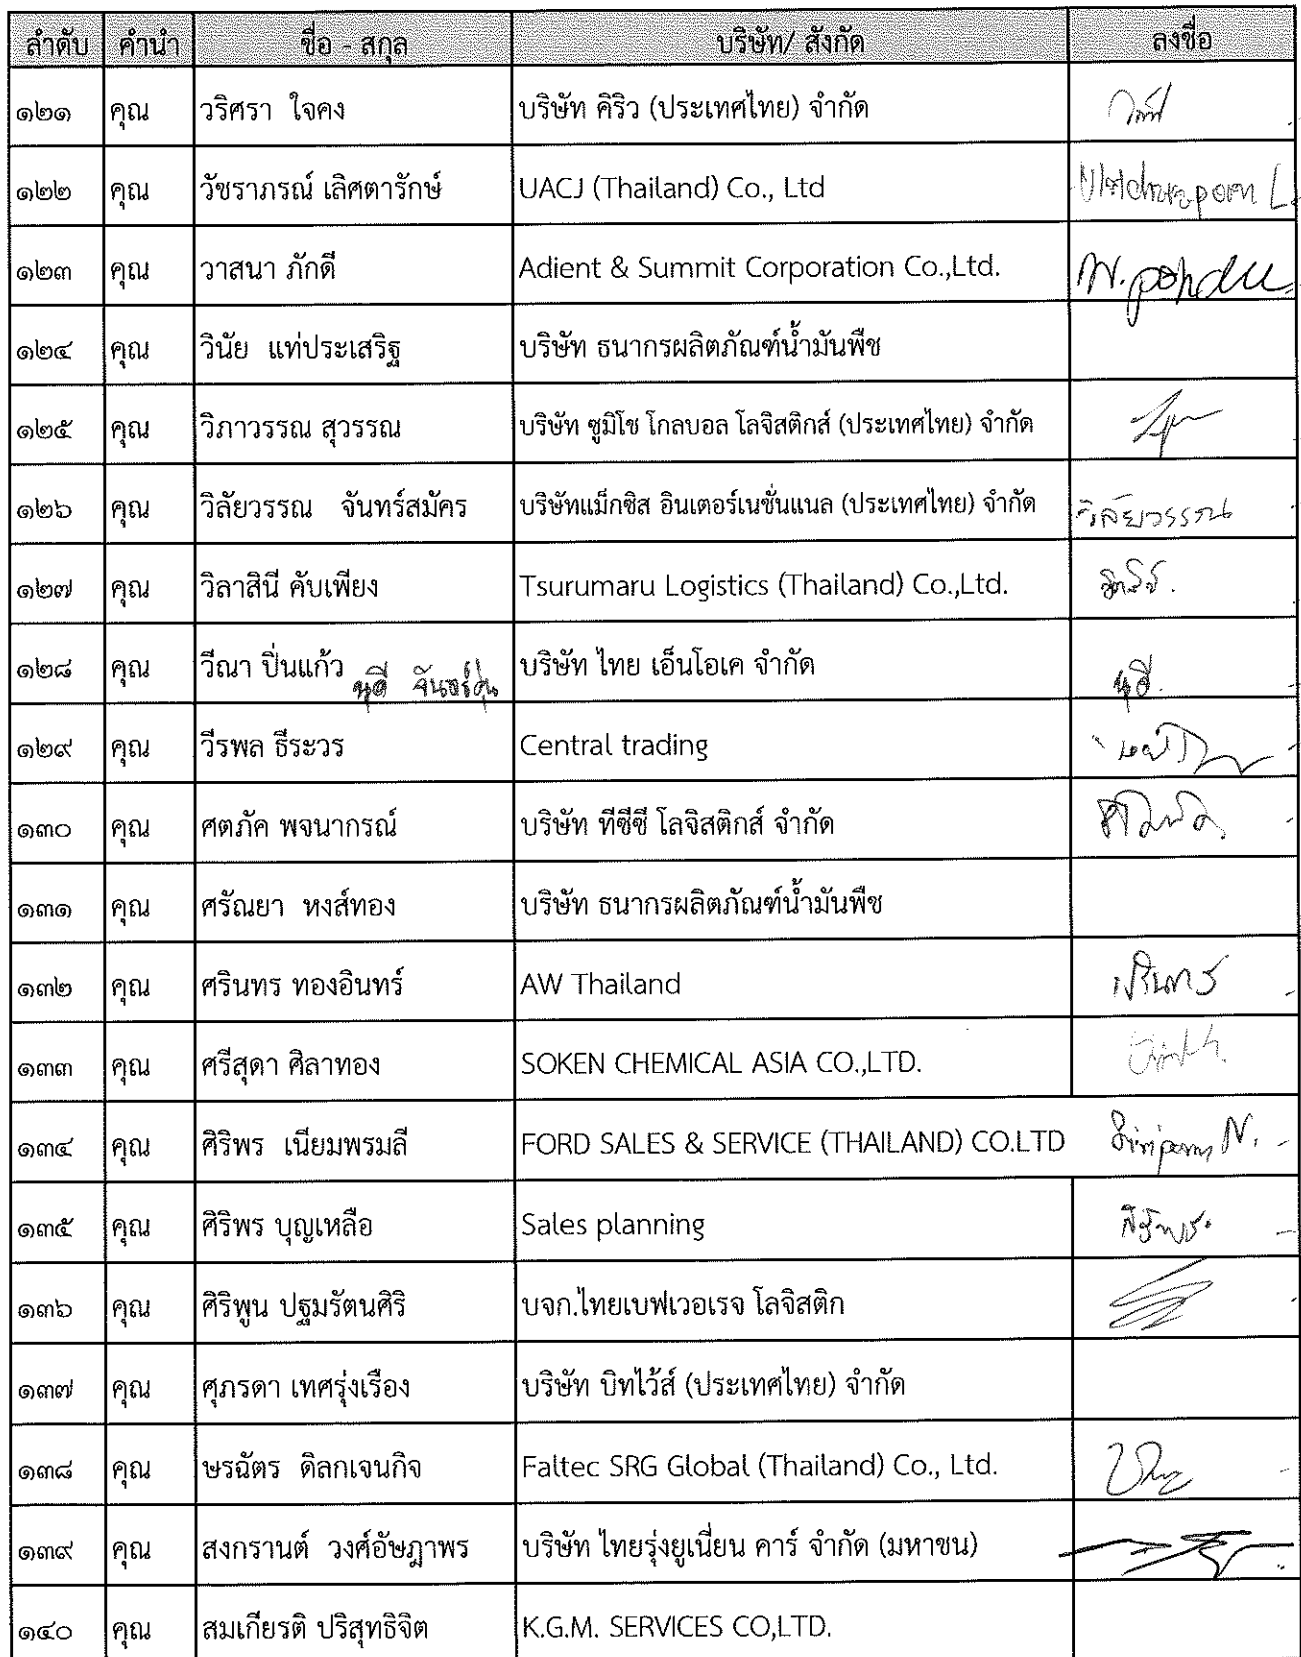 ลำดับ คำนำ ชื่อ - สกุล บริษัท/ สังกัด ลงชื่อ
๑๒๑ คุณ วริศรา ใจคง บริษัท คิริว (ประเทศไทย) จำกัด
๑๒๒ คุณ วัชราภรณ์ เลิศตารักษ์ UACJ (Thailand) Co., Ltd
๑๒๓ คุณ วาสนา ภักดี Adient & Summit Corporation Co.,Ltd.
๑๒๔ คุณ วินัย แท่ประเสริฐ บริษัท ธนากรผลิตภัณฑ์น้ำมันพืช
๑๒๕ คุณ วิภาวรรณ สุวรรณ บริษัท ซูมิโช โกลบอล โลจิสติกส์ (ประเทศไทย) จำกัด
๑๒๖ คุณ วิลัยวรรณ จันทร์สมัคร บริษัทแม็กซิส อินเตอร์เนชั่นแนล (ประเทศไทย) จำกัด วิลัยวรรณ
๑๒๗ คุณ วิลาสินี คับเพียง Tsurumaru Logistics (Thailand) Co.,Ltd.
๑๒๘ คุณ วีณา ปิ่นแก้ว บริษัท ไทย เอ็นโอเค จำกัด
๑๒๙ คุณ วีรพล ธีระวร Central trading
๑๓๐ คุณ ศตภัค พจนากรณ์ บริษัท ทีซีซี โลจิสติกส์ จำกัด
๑๓๑ คุณ ศรัณยา หงส์ทอง บริษัท ธนากรผลิตภัณฑ์น้ำมันพืช
๑๓๒ คุณ ศรินทร ทองอินทร์ AW Thailand
๑๓๓ คุณ ศรีสุดา ศิลาทอง SOKEN CHEMICAL ASIA CO.,LTD.
๑๓๔ คุณ ศิริพร เนียมพรมลี FORD SALES & SERVICE (THAILAND) CO.LTD Siriporn N.
๑๓๕ คุณ ศิริพร บุญเหลือ Sales planning
๑๓๖ คุณ ศิริพูน ปฐมรัตนศิริ บจก.ไทยเบฟเวอเรจ โลจิสติก
๑๓๗ คุณ ศุภรดา เทศรุ่งเรือง บริษัท บิทไว้ส์ (ประเทศไทย) จำกัด
๑๓๘ คุณ ษรฉัตร ดิลกเจนกิจ Faltec SRG Global (Thailand) Co., Ltd.
๑๓๙ คุณ สงกรานต์ วงศ์อัษฎาพร บริษัท ไทยรุ่งยูเนี่ยน คาร์ จำกัด (มหาชน)
๑๔๐ คุณ สมเกียรติ ปริสุทธิจิต K.G.M. SERVICES CO,LTD.